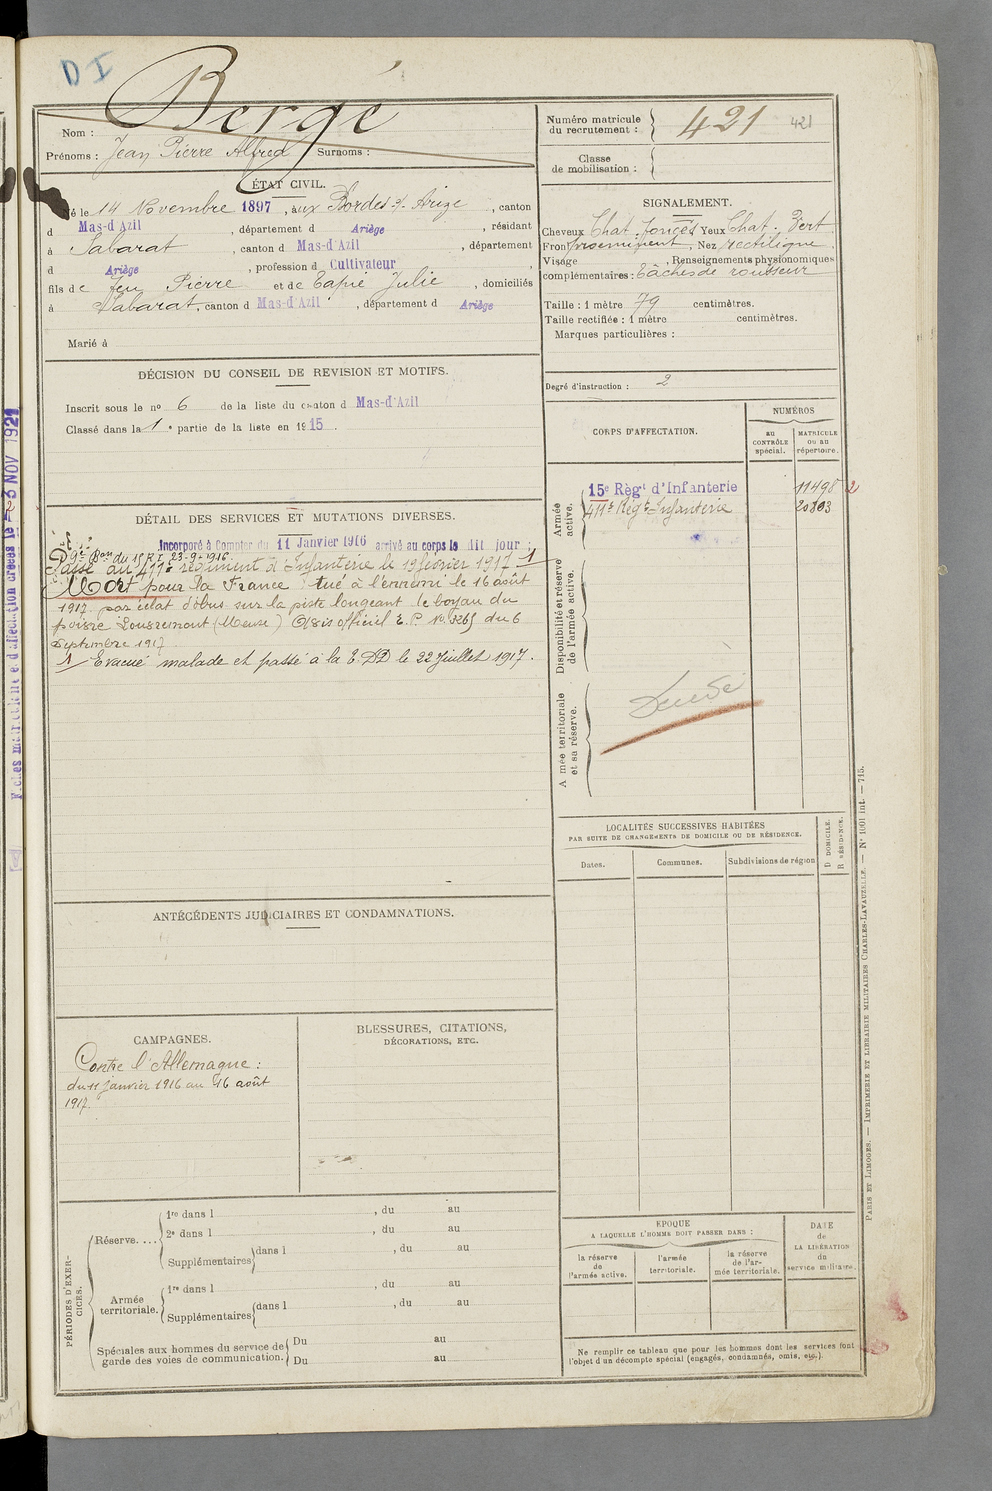 D I
Bergé
Nom :
Prénoms : Jean Pierre Alfred Surnoms :
Numéro matricule
du recrutement :
421
421
Classe
de mobilisation :
ÉTAT CIVIL.
Né le 14 Novembre 1897, aux Bordes s/ Arize, canton
d Mas-d'Azil, département d Ariège, résidant
à Sabarat, canton d Mas-d'Azil, département
d Ariège, profession d Cultivateur,
fils de feu Pierre et de Eapié Julie, domiciliés
à Sabarat, canton d Mas-d'Azil, département d Ariège
Marié à
SIGNALEMENT.
Cheveux Chat. foncés Yeux Chat. Vert
Front proeminent, Nez rectiligne
Visage , Renseignements physionomiques
complémentaires : Tâches de rousseur
Taille : 1 mètre 79 centimètres.
Taille rectifiée : 1 mètre centimètres.
Marques particulières :
Degré d'instruction : 2
DÉCISION DU CONSEIL DE REVISION ET MOTIFS.
Inscrit sous le nº 6 de la liste du canton d Mas-d'Azil
Classé dans la 1 e partie de la liste en 1915.
CORPS D'AFFECTATION.
NUMÉROS
AU
CONTRÔLE
spécial.
MATRICULE
ou au
répertoire.
Armée
active.
15e Régt d'Infanterie 11498 2
411e Régt Infanterie 20803
Disponibilité et réserve
de l'armée active.
Armée territoriale
et sa réserve.
Décédé
DÉTAIL DES SERVICES ET MUTATIONS DIVERSES.
Incorporé à Compter du 11 Janvier 1916 arrivé au corps le dit jour ;
9e Bon du 15 R I 23-9-1916.
Passé au 411e régiment d'Infanterie le 19 février 1917 1
Mort pour la France tué à l'ennemi le 16 août
1917 par éclat d'obus sur la piste longeant le boyau du
poivre Louvemont (Meuse) Avis officiel E. P. No 3265 du 6
Septembre 1917
1 Evacué malade et passé à la E.DD le 22 Juillet 1917.
Fiches matricule et d'affectation créées le - 3 NOV 1921
LOCALITÉS SUCCESSIVES HABITÉES
PAR SUITE DE CHANGEMENTS DE DOMICILE OU DE RÉSIDENCE.
Dates.
Communes.
Subdivisions de région
D DOMICILE.
R RÉSIDENCE.
ANTÉCÉDENTS JUDICIAIRES ET CONDAMNATIONS.
CAMPAGNES.
Contre l'Allemagne :
du 11 janvier 1916 au 16 août
1917.
BLESSURES, CITATIONS,
DÉCORATIONS, ETC.
PÉRIODES D'EXER-
CICES.
Réserve....
1re dans l , du au
2e dans l , du au
Supplémentaires dans l , du au
Armée
territoriale.
1re dans l , du au
Supplémentaires dans l , du au
Spéciales aux hommes du service de
garde des voies de communication.
Du au
Du au
EPOQUE
A LAQUELLE L'HOMME DOIT PASSER DANS :
la réserve
de
l'armée active.
l'armée
territoriale.
la réserve
de l'ar-
mée territoriale.
DATE
de
LA LIBÉRATION
du
service militaire.
Ne remplir ce tableau que pour les hommes dont les services font
l'objet d'un décompte spécial (engagés, condamnés, omis, etc.).
PARIS ET LIMOGES. — IMPRIMERIE ET LIBRAIRIE MILITAIRES CHARLES-LAVAUZELLE. — Nº 1001 int. — 715.